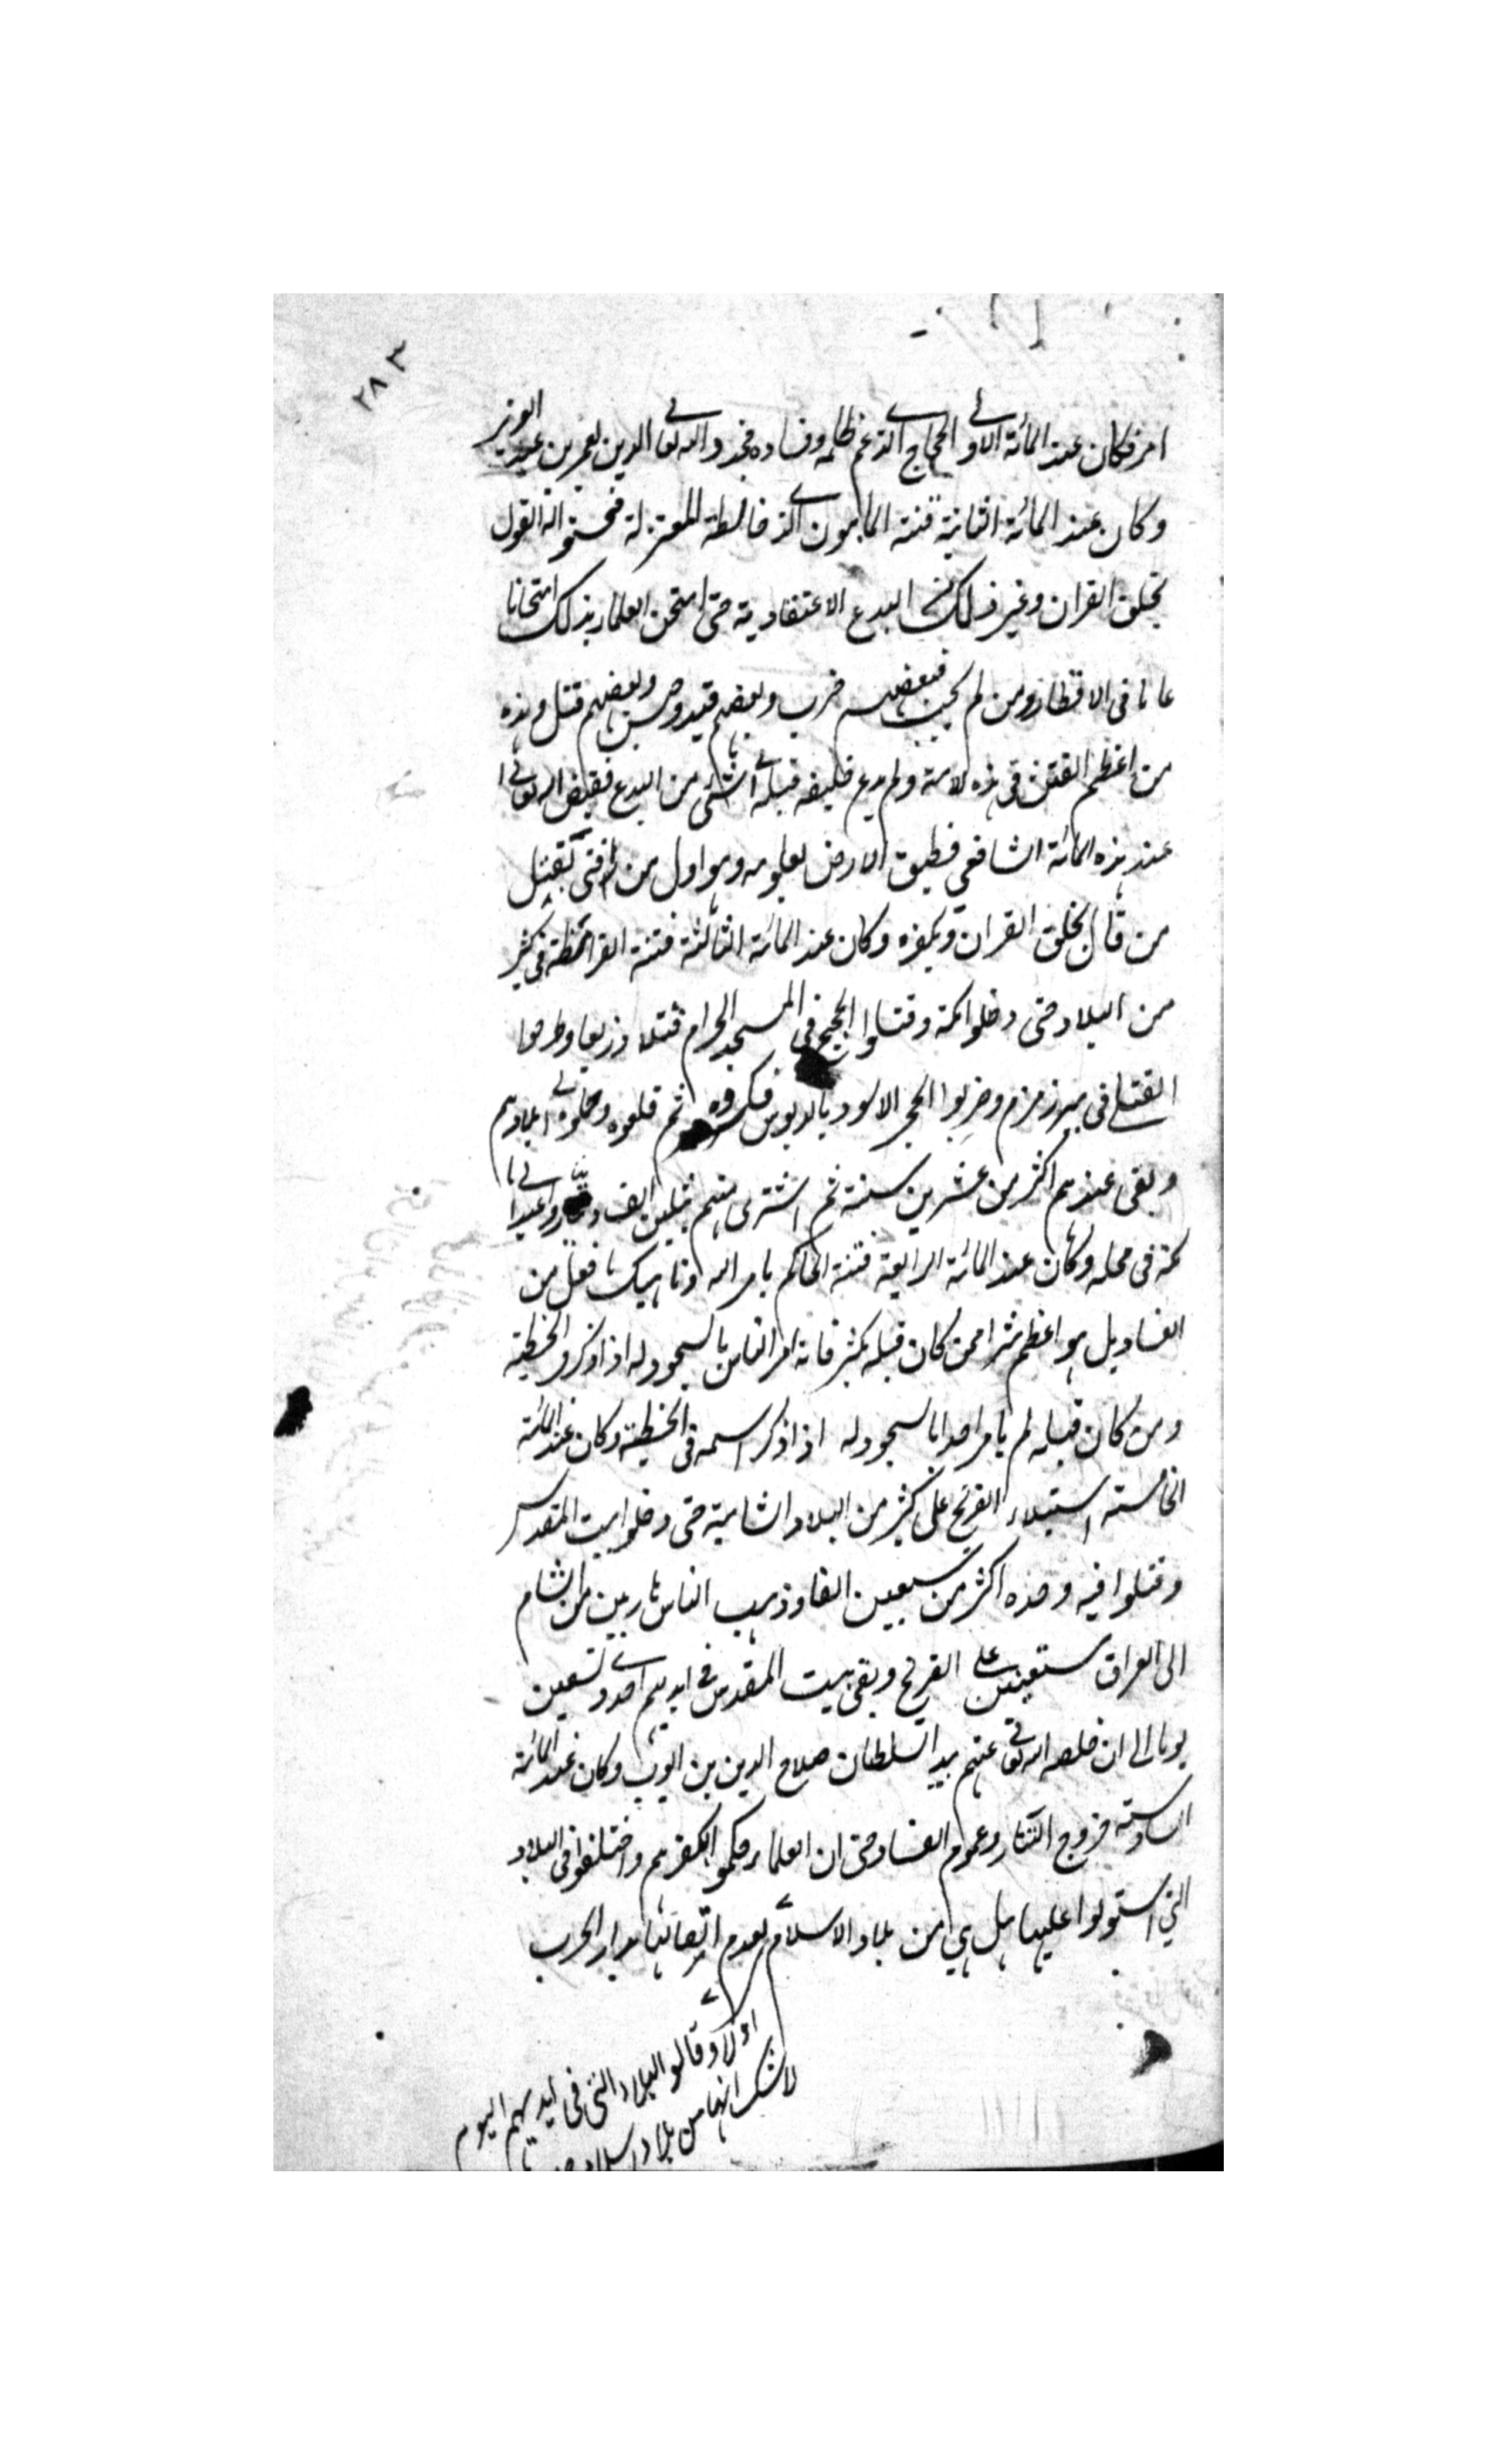 ٢٨٣
امر فكان عند المائة الاولى الحجاج الذى عم ظلمه وفساده فجدد الله تعالى الدين بعمر بن عبد العزيز
وكان عند المائة الثانية فتنة المامون الذى خالطه المعتزلة فحسنوا له القول
بخلق القران وغير ذلك من البدع الاعتقادية حتى امتحن العلماء بذلك امتحانا
عاما فى الاقطار ومن لم يجب فبعضهم ضرب وبعضهم قيد وحبس وبعضهم قتل وهذه
من اعظم الفتن فى هذه الامة ولم يدع خليفة قبله الى شئ من البدع فقيض الله تعالى
عند هذه المائة الشافعي فطبق الارض بعلومه وهو اول من افتى بقتل
من قال بخلق القران وبكفره وكان عند المائة الثالثة فتنة القرامطة فى كثير
من البلاد حتى دخلوا مكة وقتلوا الحجيج فى المسجد الحرام قتلا ذريعا وطرحوا
القتلى فى بير زمزم وضربوا الحجر الاسود بالدبوس فكسروه ثم قلعوه وحملوه الى بلادهم
وبقى عندهم اكثر من عشرين سنة ثم اشترى منهم بثلثين الف دينار واعيد الى
مكة فى محله وكان عند المائة الرابعة فتنة الحاكم بامر الله وناهيك ما فعل من
الفساد بل هو اعظم شرا ممن كان قبله بكثير فانه امر الناس بالسجود له اذا ذكر فى الخطبة
ومن كان قبله لم يامر احدا بالسجود له اذا ذكر اسمه فى الخطبة وكان عند المائة
الخامسة استيلاء الفرنج على كثير من البلاد الشامية حتى دخلوا بيت المقدس
وقتلوا فيه وحده اكثر من سبعين الفا وذهب الناس هاربين من الشام
الى العراق مستعينين على الفرنج وبقى بيت المقدس فى ايديهم احدى وتسعين
يوما الى ان خلصه الله تعالى عنهم بيد السلطان صلاح الدين بن ايوب وكان عند المائة
السادسة خروج التتار وعموم الفساد حتى ان العلماء حكموا بكفرهم واختلفوا فى البلاد
التي استولوا عليها هل هي من بلاد الاسلام لعدم اتصالها بدار الحرب
اولا وقالوا البلاد التى فى ايديهم اليوم
لا شك انها من بلاد